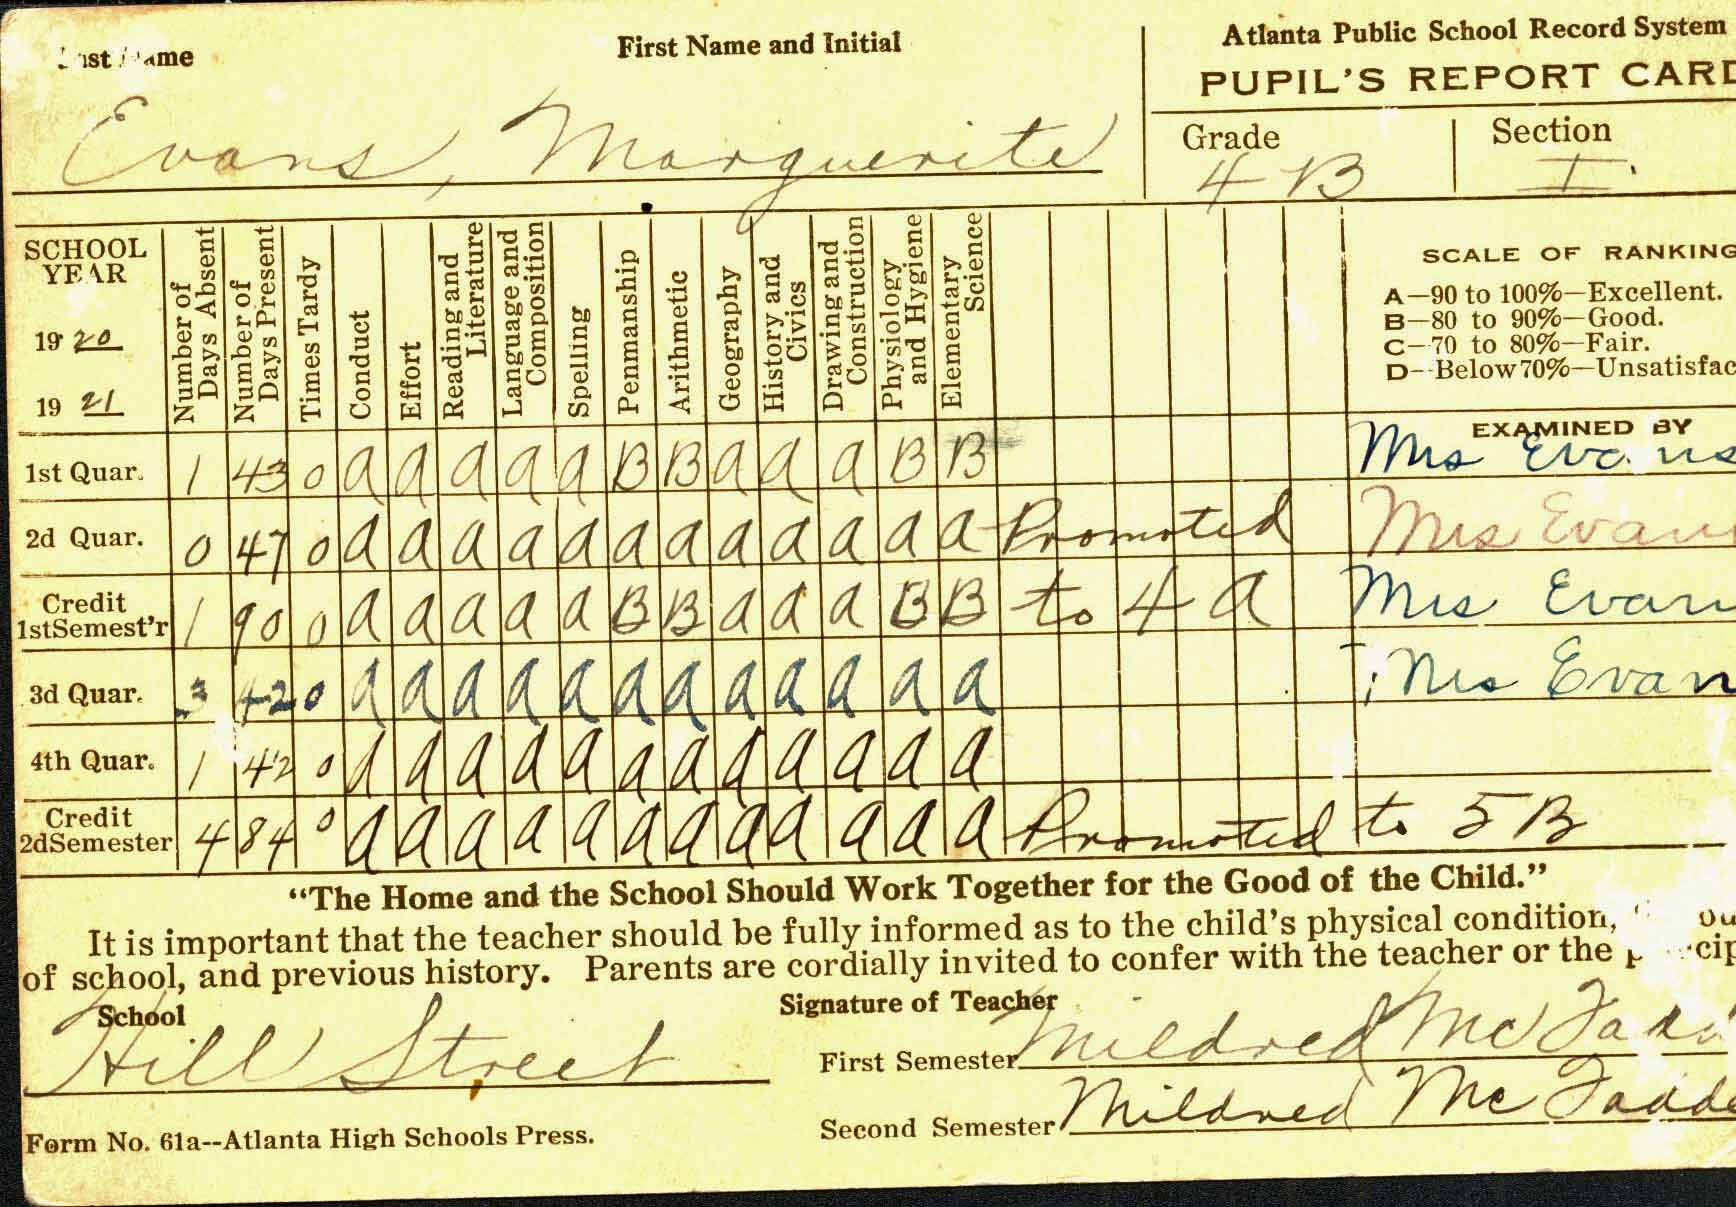 Last Name First Name and Initial
Evans, Marguerite
Atlanta Public School Record System
PUPIL'S REPORT CARD
Grade Section
4 B I.
SCHOOL YEAR
19 20
19 21
Number of Days Absent
Number of Days Present
Times Tardy
Conduct
Effort
Reading and Literature
Language and Composition
Spelling
Penmanship
Arithmetic
Geography
History and Civics
Drawing and Construction
Physiology and Hygiene
Elementary Science
SCALE OF RANKING
A—90 to 100%—Excellent.
B—80 to 90%—Good.
C—70 to 80%—Fair.
D—Below 70%—Unsatisfac
EXAMINED BY
1st Quar. 1 43 0 a a a a a B B a a a B B Mrs Evans
2d Quar. 0 47 0 a a a a a a a a a a a a Promoted Mrs Evans
Credit 1stSemest'r 1 90 0 a a a a a B B a a a B B to 4 a Mrs Evan
3d Quar. 3 42 0 a a a a a a a a a a a a Mrs Evan
4th Quar. 1 42 0 a a a a a a a a a a a a
Credit 2dSemester 4 84 0 a a a a a a a a a a a a Promoted to 5 B
"The Home and the School Should Work Together for the Good of the Child."
It is important that the teacher should be fully informed as to the child's physical condition,
of school, and previous history. Parents are cordially invited to confer with the teacher or the
School
Hill Street
Signature of Teacher
First Semester Mildred McFadd
Second Semester Mildred McFadde
Form No. 61a--Atlanta High Schools Press.